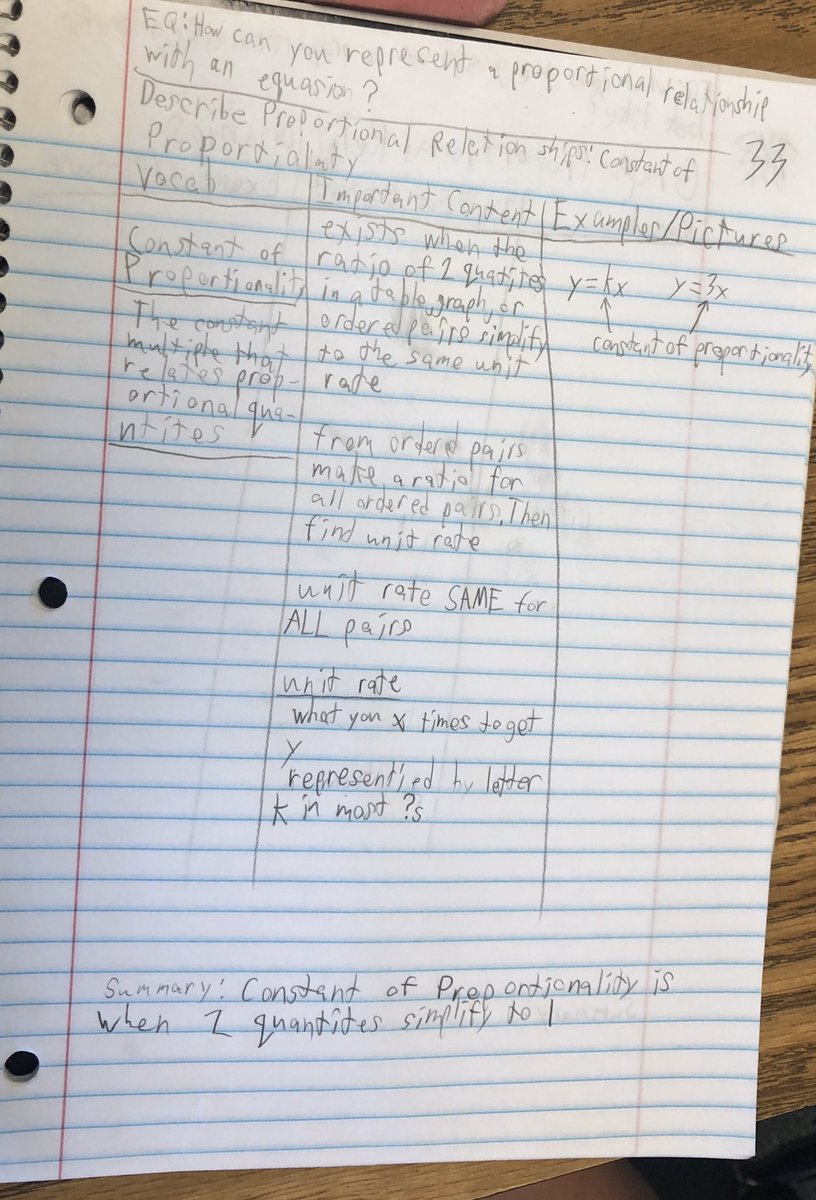 EQ: How can you represent a proportional relationship
with an equasion?
Describe Proportional Relation ships: Constant of
Proportialaty
33
Vocab
Constant of
Proportionality
The constant
multiple that
relates prop-
ortional qua-
ntites
Important Content
exists when the
ratio of 2 quatites
in a table, graph, or
ordered pairs simplify
to the same unit
rate
from ordered pairs
make a ratio for
all ordered pairs. Then
find unit rate
unit rate SAME for
ALL pairs
unit rate
what you x times to get
y
represented by letter
k in most ?s
Examples/Pictures
y=kx y=3x
constant of proportionality
Summary: Constant of Proportionality is
when 2 quantites simplify to 1